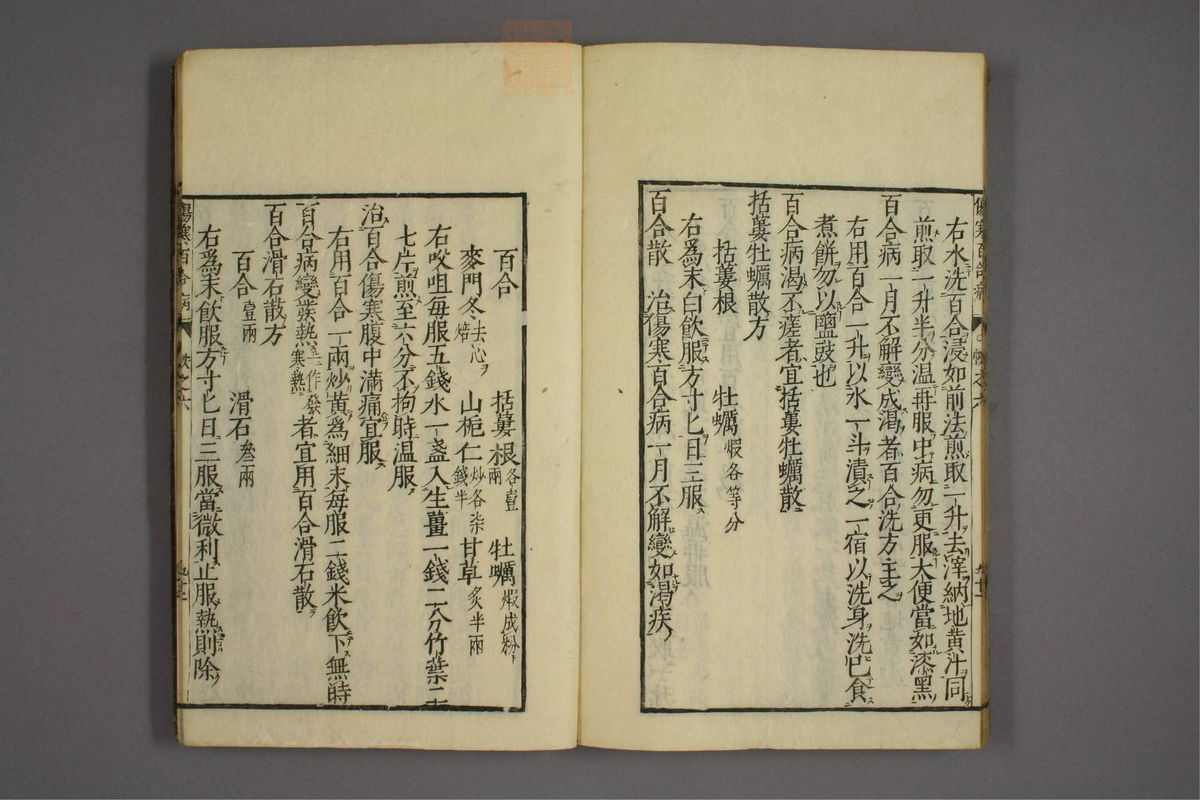 右水洗百合浸如前法煎取一升去滓納地黄汁同
煎取一升半分温再服中病勿更服大便當如漆黑
百合病一月不解變成渇者百合洗方主之
右用百合一升以水一斗漬之一宿以洗身洗已食
煮餅勿以鹽豉也
百合病渇不瘥者宜括蔞牡蠣散
括蔞牡蠣散方
括蔞根　牡蠣煅各等分
右爲末白飲服方寸匕日三服
百合散　治傷寒百合病一月不解變如渇疾
百合　括蔞根各壹兩　牡蠣煅成粉
麥門冬去心焙　山梔仁炒各柒錢半　甘草炙半兩
右㕮咀每服五錢水一盞入生薑一錢二分竹葉二
七片煎至六分不拘時温服
治百合傷寒腹中滿痛宜服
右用百合一兩炒黄爲細末每服二錢米飲下無時
百合病變發熱一作發寒熱者宜用百合滑石散
百合滑石散方
百合壹兩　滑石叁兩
右爲末飲服方寸匕日三服當微利止服熱則除
傷寒百合病